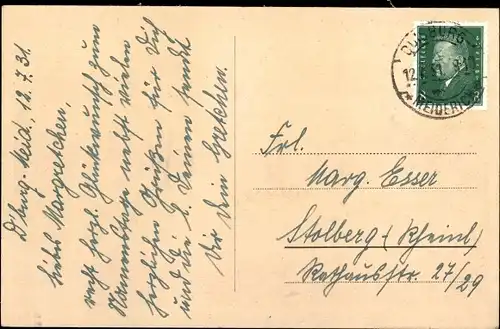 D'burg-Meid., 12.7.31.
Liebes Margretchen.
recht herzl. Glückwunsch zum
Namenstage nebst vielen
herzlichen Grüßen für Dich
und die l. Deinen sendet
Dir Dein Gretchen.
DUISBURG
MEIDERICH
Frl.
Marg. Esser
Stolberg (Rheinl.
Rathausstr. 27/29